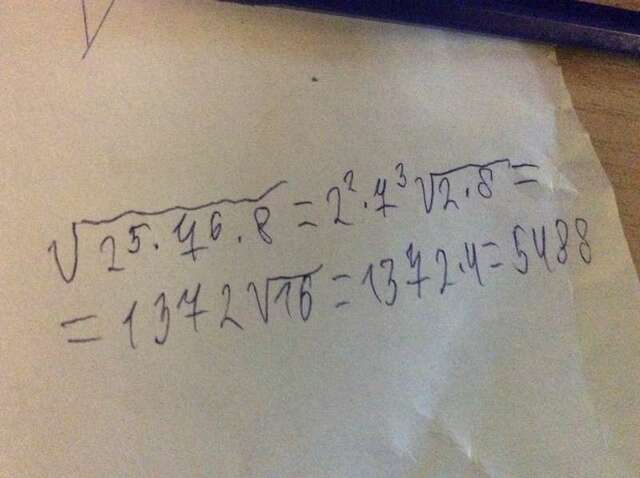 √(2⁵·7⁶·8) = 2²·7³√(2·8) =
= 1372√16 = 1372·4 = 5488